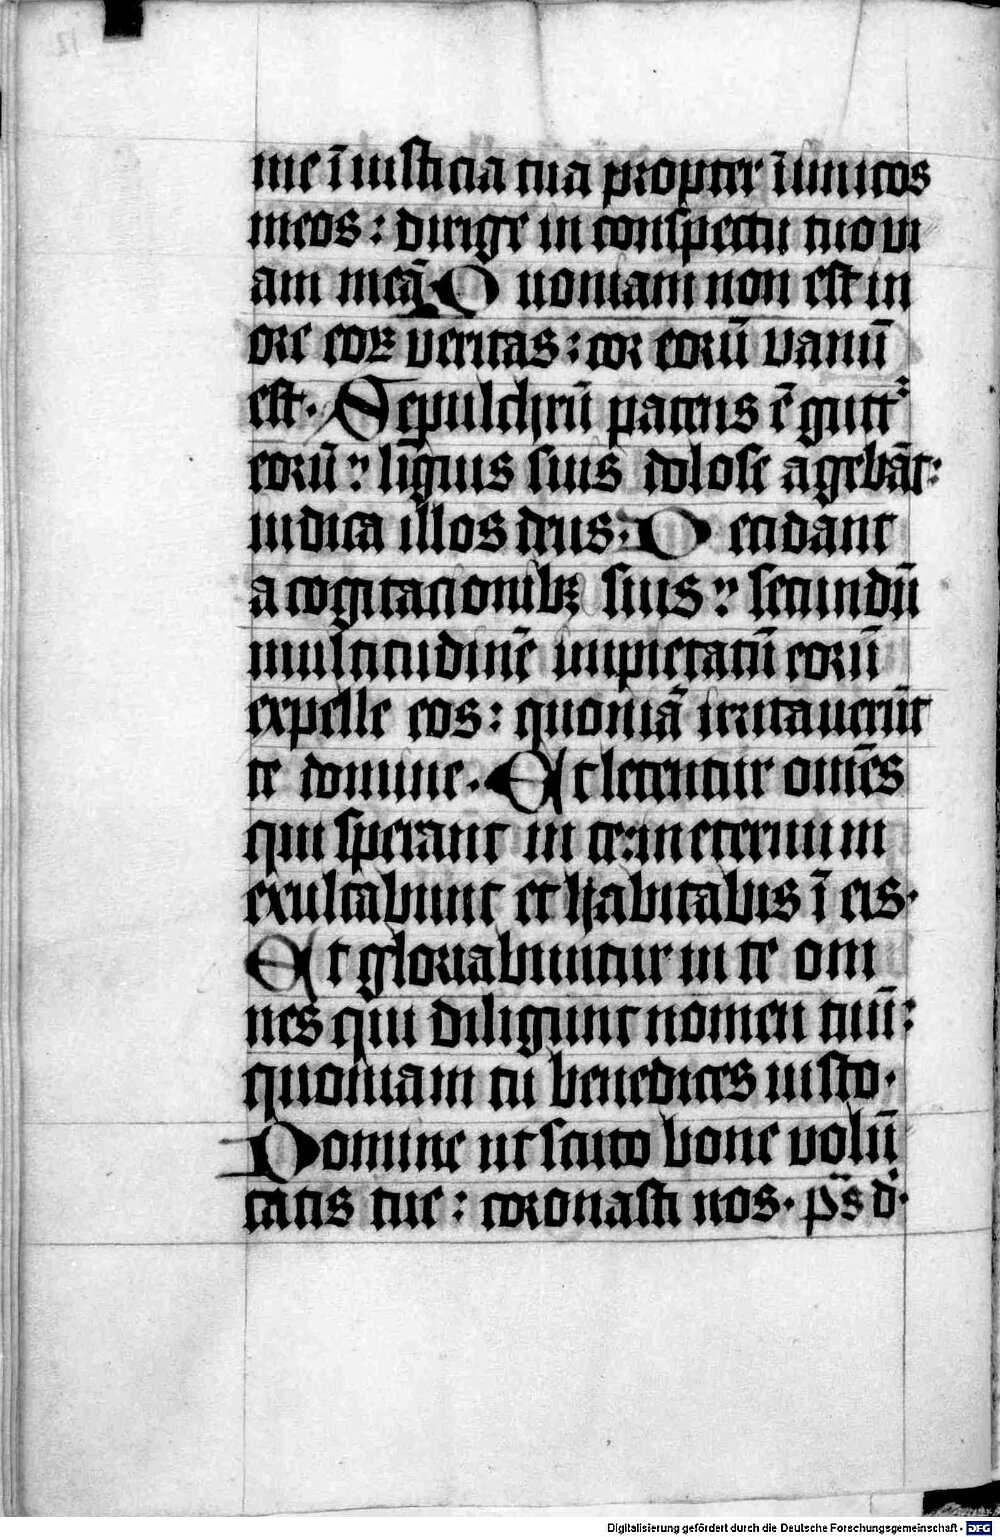 me ī iusticia tua propter īimicos
meos : dirige in conspectu tuo vi
am meā. Quoniam non est in
ore eoꝝ veritas : cor eorū vanū
est. Sepulchrū patens ē gutt᷒
eorū : liguis suis dolose agebāt :
iudica illos deus. Decidant
a cogitacionibꝫ suis : secundū
multitudinē impietatū eorū
expelle eos : quoniā irritauerūt
te domine. Et letentur om̄es
qui sperant in te : in eternum
exultabunt et habitabis ī eis.
Et gloriabuntur in te om
nes qui diligunt nomen tuū :
quoniam tu benedices iusto.
Domine ut scuto bone volū
tatis tue : coronasti nos. p̄s d᷒.
Digitalisierung gefördert durch die Deutsche Forschungsgemeinschaft - DFG